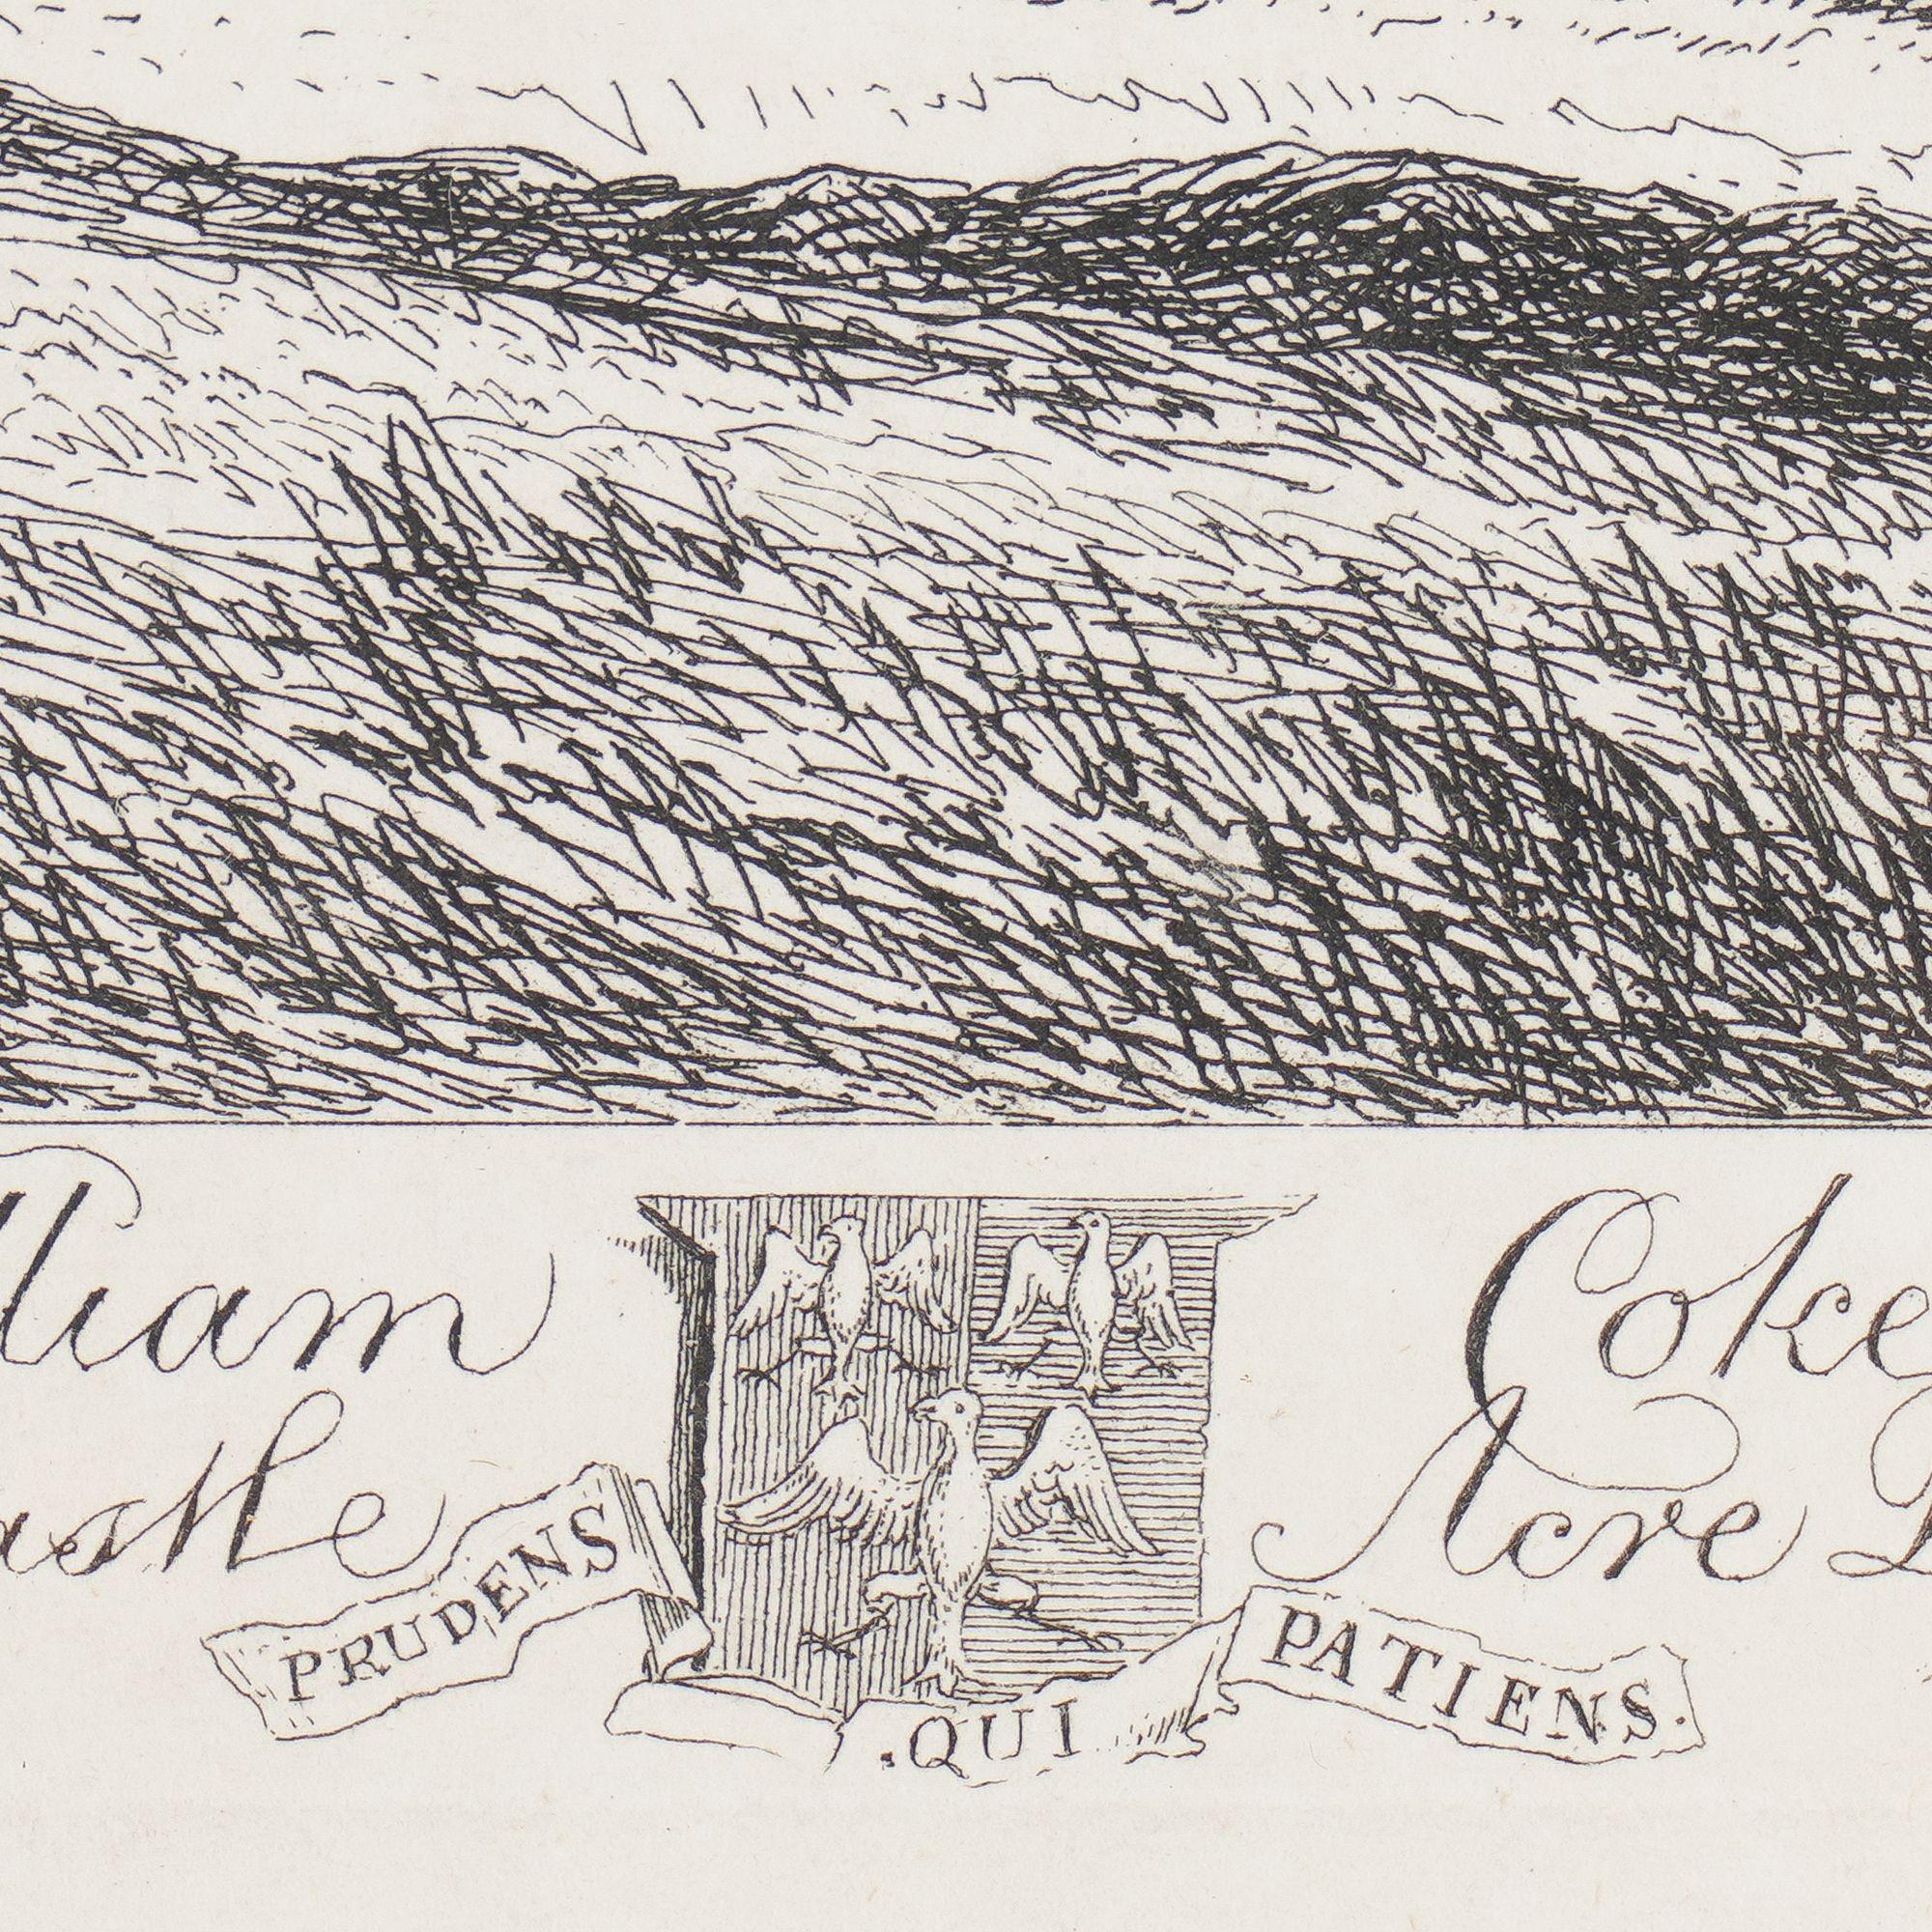 lliam Coke
astle Acre
PRUDENS QUI PATIENS.